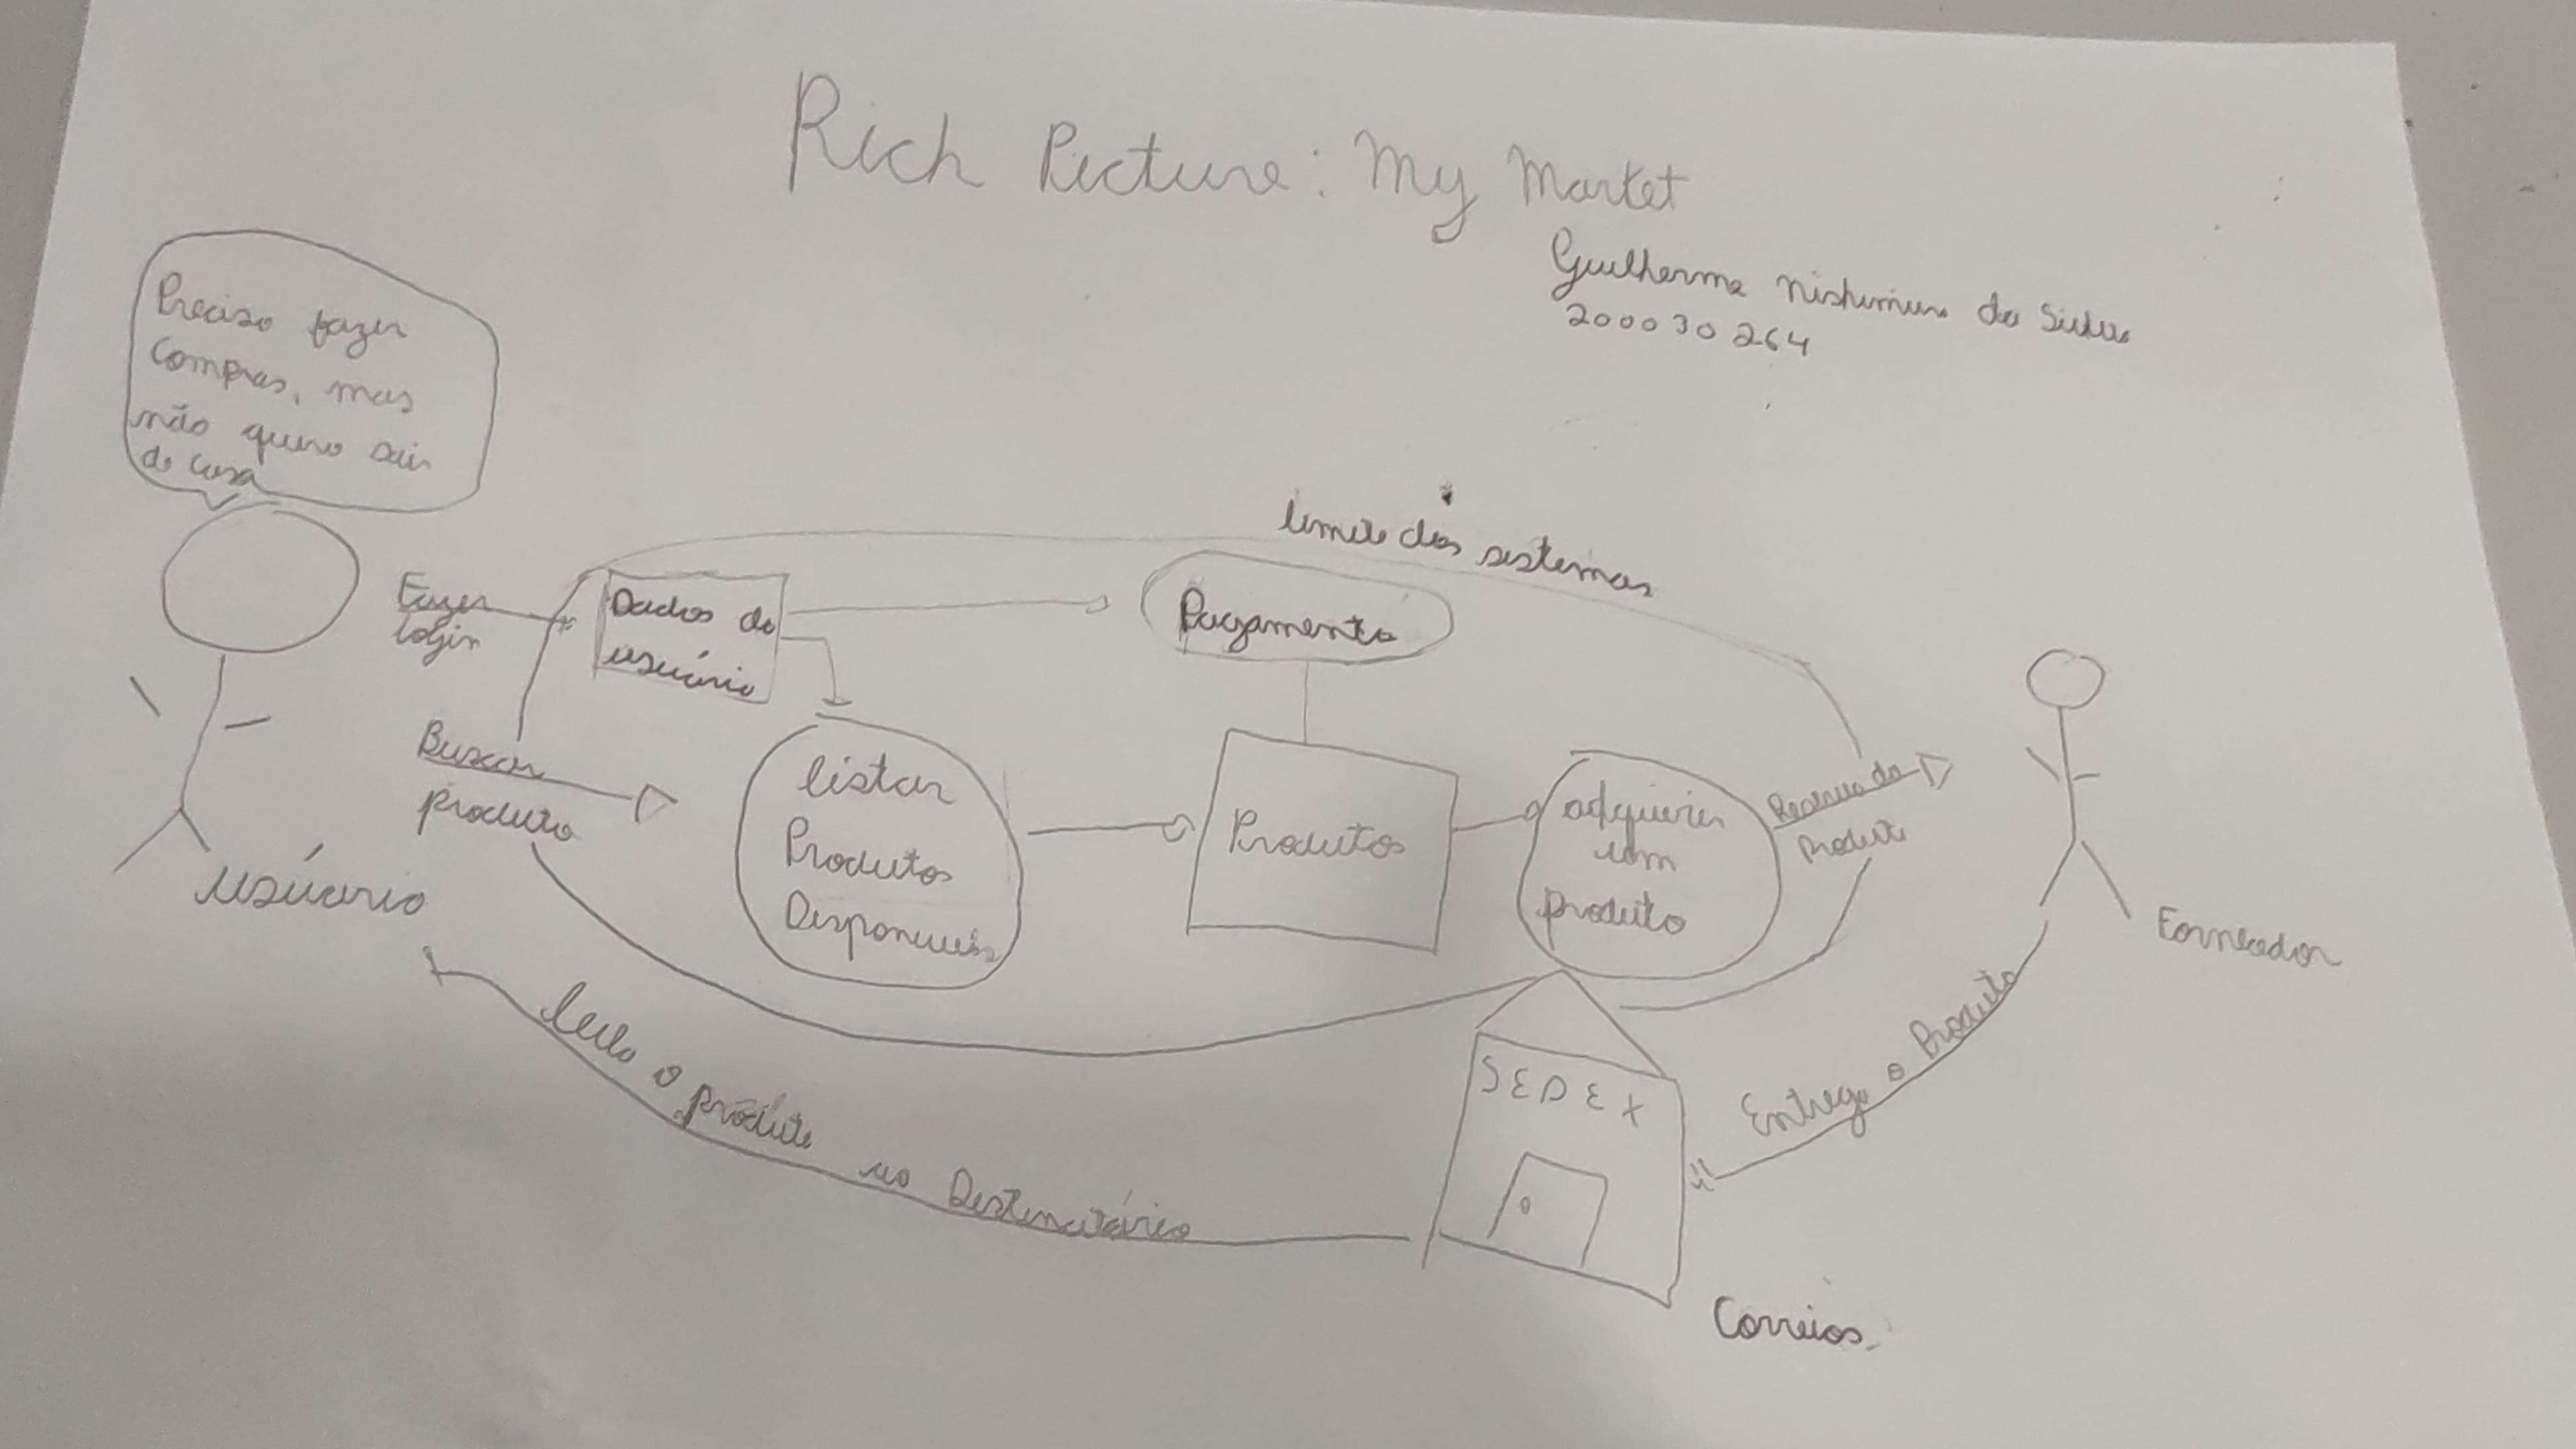 Rich Picture: My Market
Guilherme Nishimura da Silva
200030264
Preciso fazer
compras, mas
não quero sair
de casa
limite dos sistemas
Fazer
login
Dados do
usuário
Pagamento
Buscar
produto
listar
Produtos
Disponíveis
Produtos
adquirir
um
produto
produto
usúario
Fornecedor
leva o produto ao Destinatário
SEDEX
Entrega o Produto
Correios